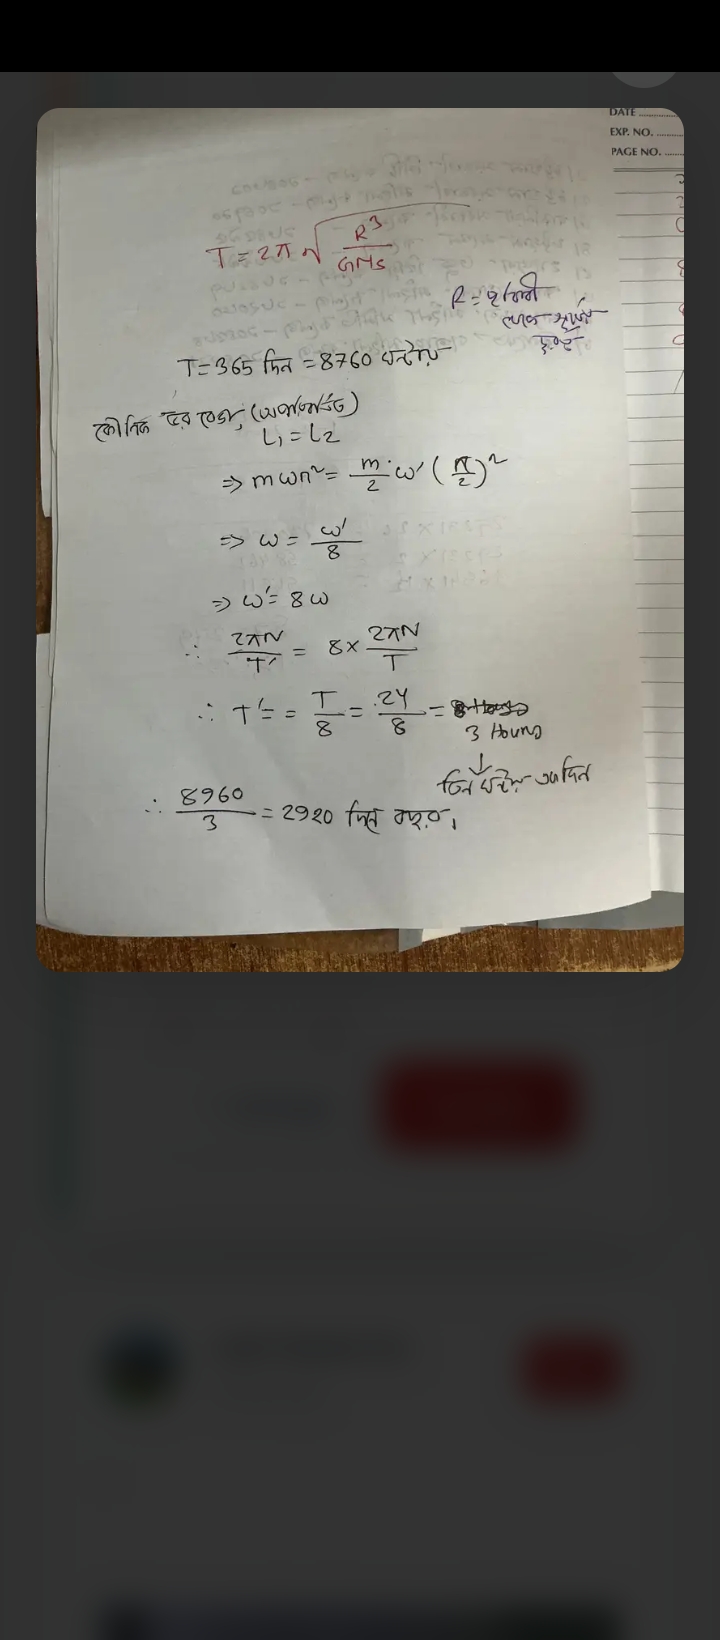 DATE
EXP. NO.
PAGE NO.
T = 2π √ R³ / GMs
R = পৃথিবী
থেকে সূর্যের
দূরত্ব
T = 365 দিন = 8760 ঘন্টায়
কৌনিক ভর বেগ,
L₁ = L₂
⇒ mωr² = m/2 · ω' (r/2)²
⇒ ω = ω'/8
⇒ ω' = 8ω
∴ 2πN/T' = 8 × 2πN/T
∴ T' = = T/8 = 24/8 =
3 Hours
↓
তিন ঘন্টায় এক দিন
∴ 8960/3 = 2920 দিনে বছর।